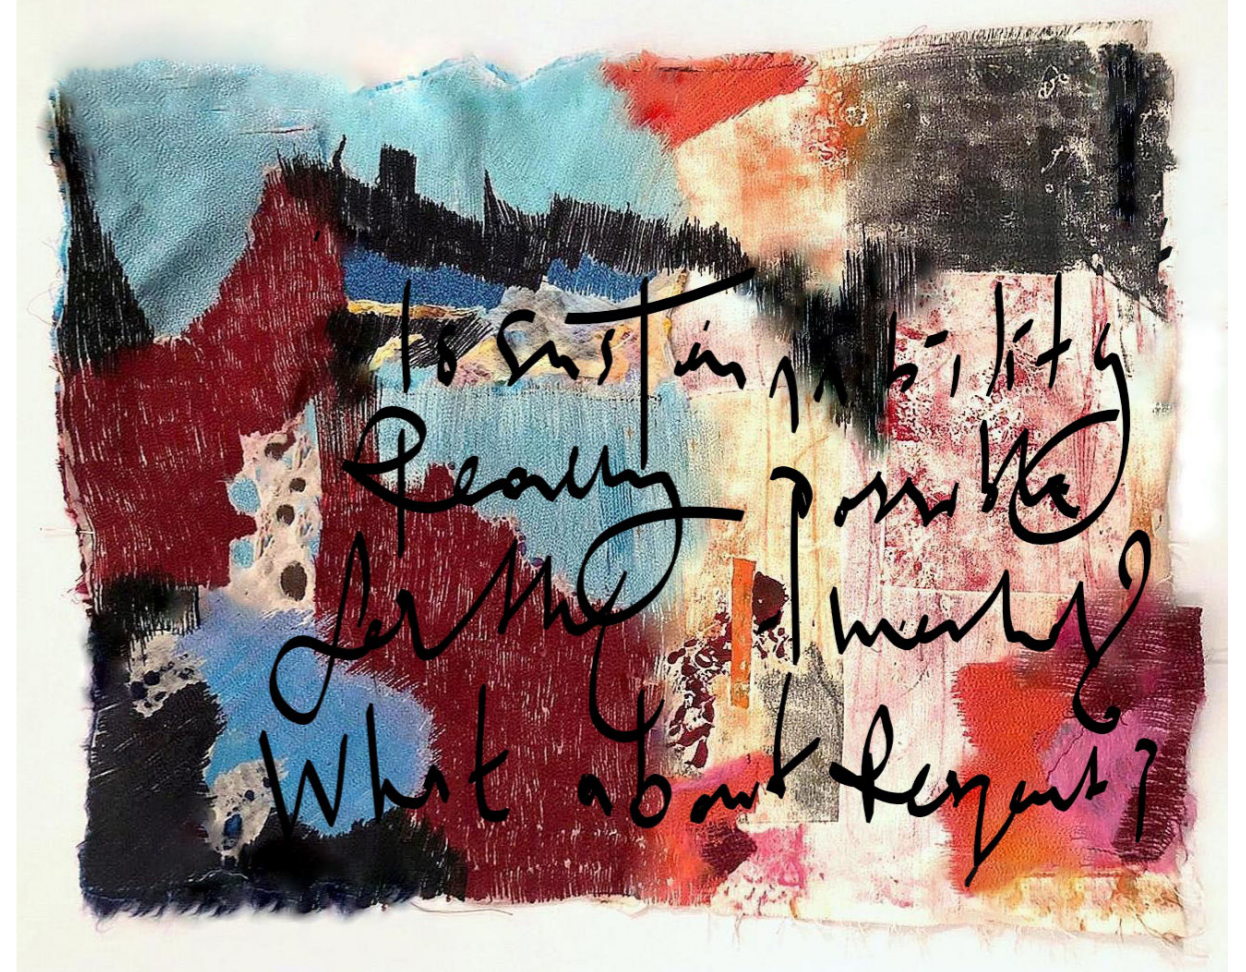 Is sustainability
Really possible
for the
What about Respect?